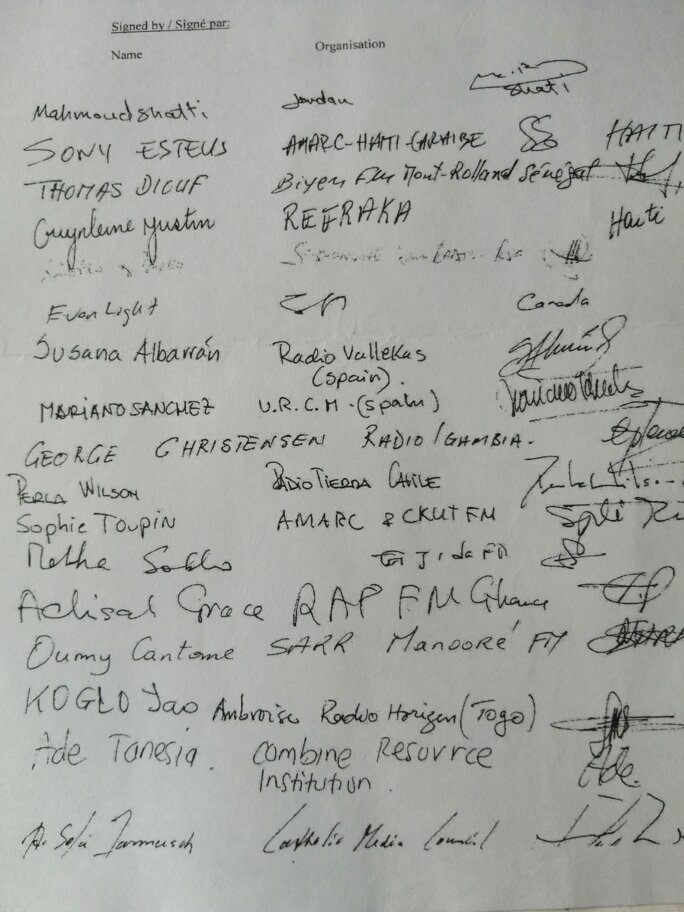 Signed by / Signé par:
Name Organisation
Mahmoud shatti Jordan shati
SONY ESTEUS AMARC-HAITI-CARAIBE HAITI
THOMAS DIOUF Biyen FM Mont-Rolland Sénégal
Guynleine Justin REFRAKA Haiti
Evan Light Canada
Susana Albarrán Radio Vallekas
(Spain).
MARIANO SANCHEZ U.R.C.M. (Spain)
GEORGE CHRISTENSEN RADIO 1 GAMBIA.
PERLA WILSON RADIO TIERRA CHILE
Sophie Toupin AMARC & CKUT FM
FM
Grace RAP FM Ghana
Oumy Cantome SARR Manooré FM
KOGLO Yao Ambroise Radio Horizon (Togo)
Ade Tanesia. Combine Resource Ade.
Institution.
Catholic Media Council